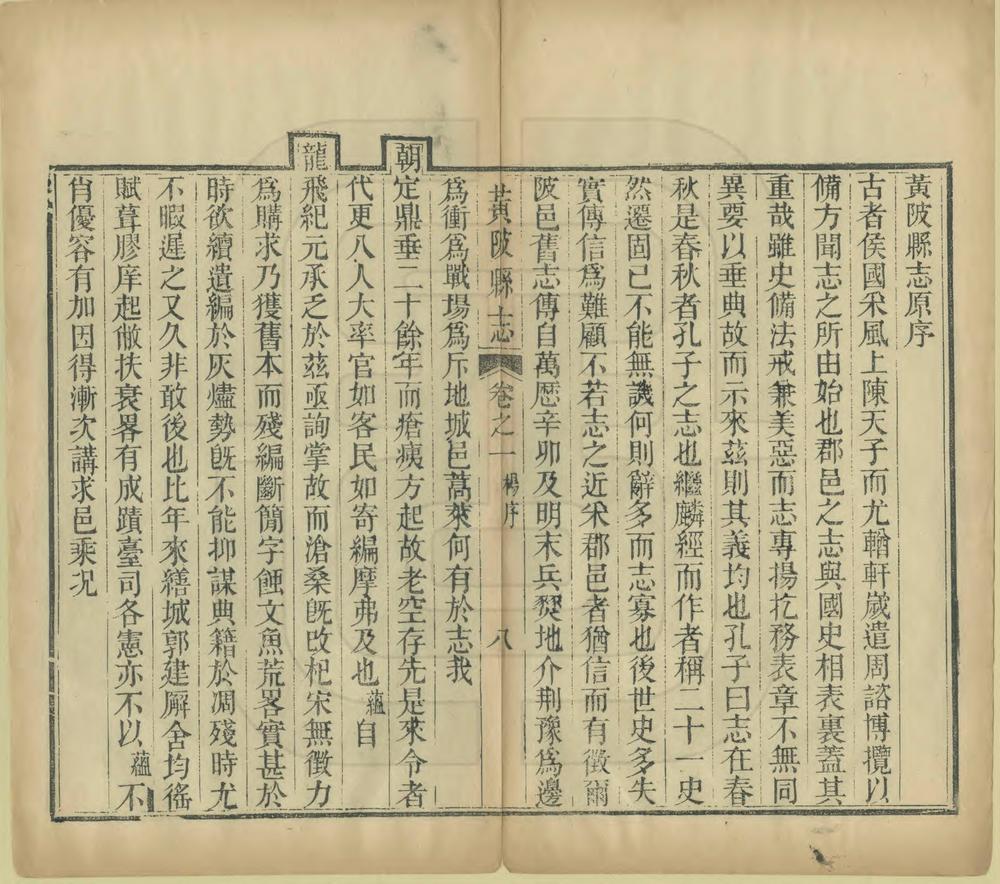 黃陂縣志原序
古者侯國采風上陳天子而尤輶軒歲遣周諮博攬以
備方聞志之所由始也郡邑之志與國史相表裏蓋其
重哉雖史備法戒兼美惡而志專揚扢務表章不無同
異要以垂典故而示來茲則其義均也孔子曰志在春
秋是春秋者孔子之志也繼麟經而作者稱二十一史
然遷固已不能無譏何則辭多而志寡也後世史多失
實傳信為難顧不若志之近采郡邑者猶信而有徵爾
陂邑舊志傳自萬厯辛卯及明末兵燹地介荆豫為邊
黃陂縣志 卷之一 楊序 八
為衝為戰場為斥地城邑蒿萊何有於志我
朝定鼎垂二十餘年而瘡痍方起故老空存先是來令者
代更八人大率官如客民如寄編摩弗及也蘊自
龍飛紀元承乏於茲亟詢掌故而滄桑旣改杞宋無徵力
為購求乃獲舊本而殘編斷簡字蝕文魚荒畧實甚於
時欲續遺編於灰燼勢旣不能抑謀典籍於凋殘時尤
不暇遲之又久非敢後也比年來繕城郭建廨舍均徭
賦葺膠庠起敝扶衰畧有成蹟臺司各憲亦不以蘊不
肖優容有加因得漸次講求邑乘况